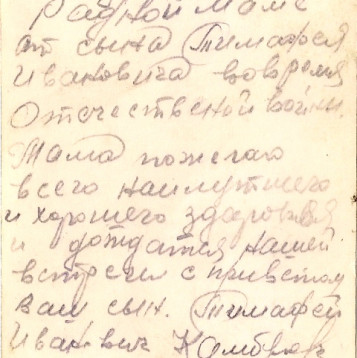 Радной маме
от сына Тимафея
Ивановича вовремя
Отечественой войны.
Мама пожелаю
всего наилутшего
и хорошего здоровья
и дождатся нашей
встречи с приветом
ваш сын. Тимафей
Иванович